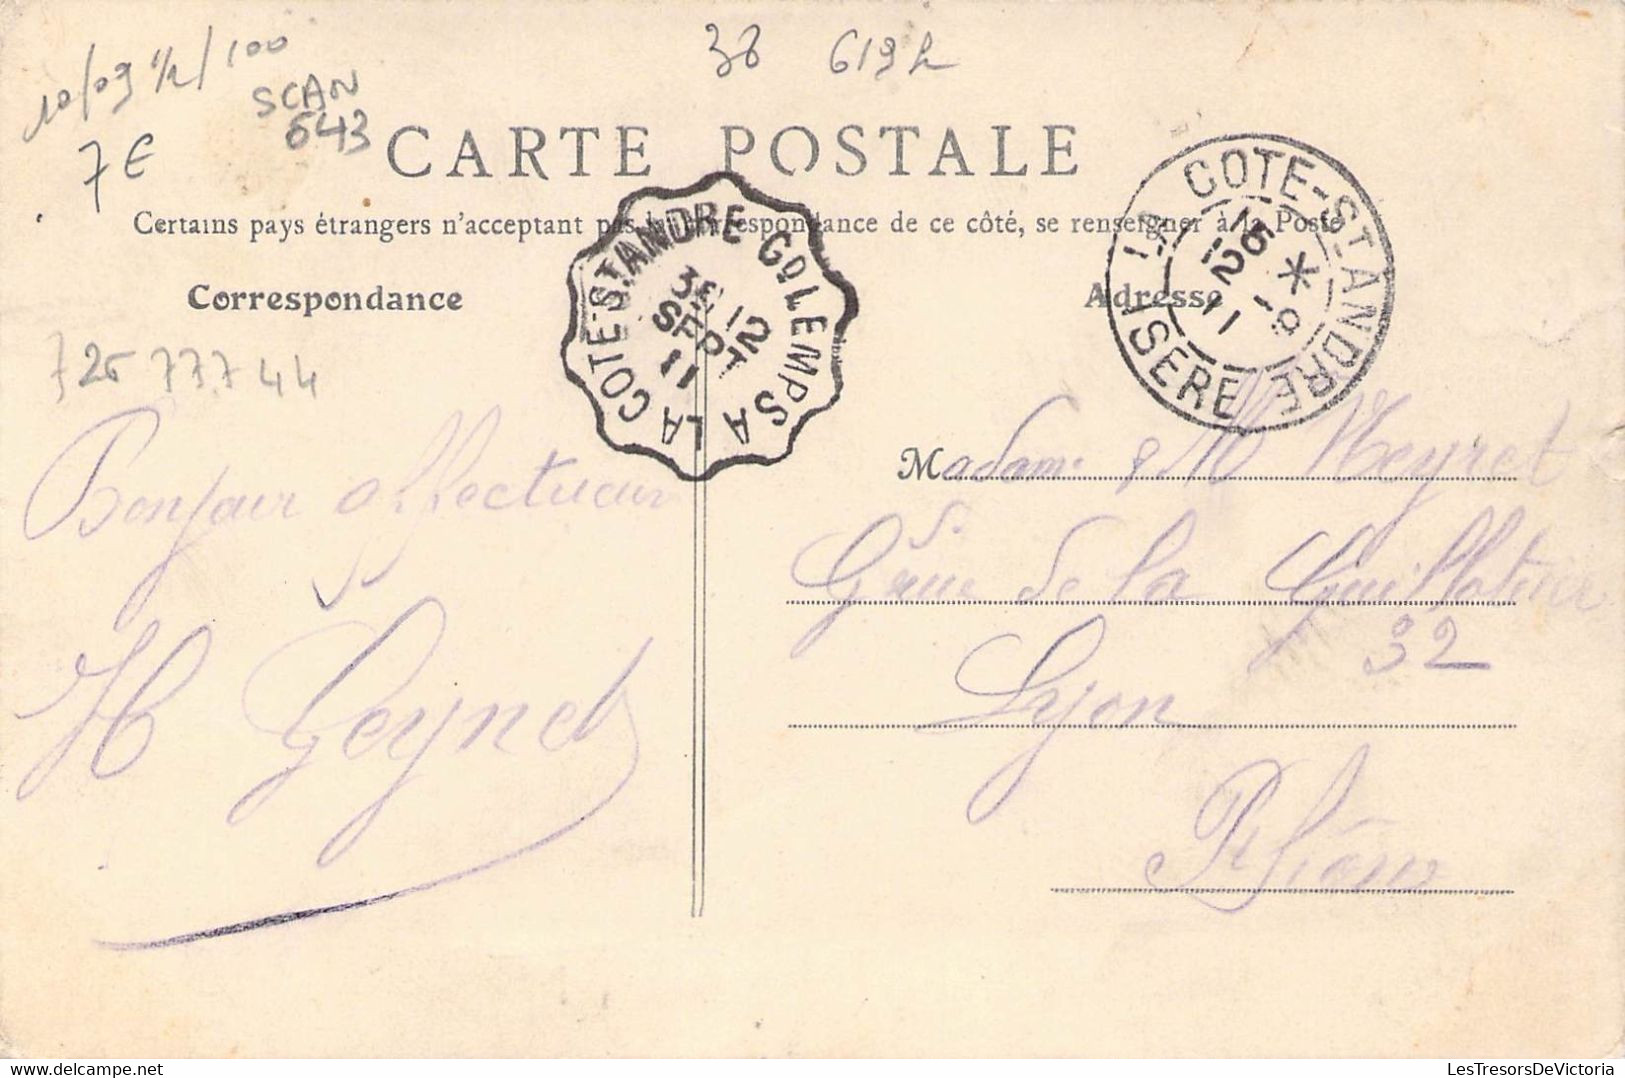 10/09 1/2/100
38 619 h
SCAN
643
7€
CARTE POSTALE
Certains pays étrangers n'acceptant pas la correspondance de ce côté, se renseigner à la Poste
Correspondance
Adresse
LA COTE-ST ANDRE
ISERE
12 9 11
GDLEMPS A LA COTE-ST ANDRE
3E 12
SEPT
11
726 777 44
Bonjour affectueux
H Geynet
Madame & M Meyret
Gde rue de la Guillotière
32
Lyon
Rhône
LesTresorsDeVictoria